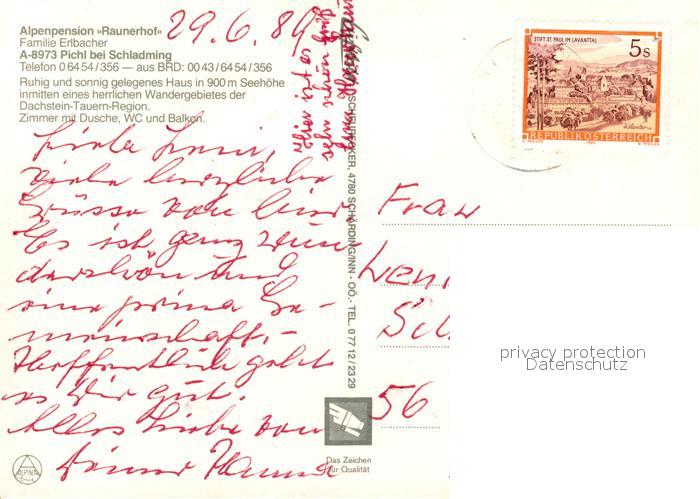 Alpenpension »Raunerhof«
Familie Erlbacher
A-8973 Pichl bei Schladming
Telefon 0 64 54 / 356 — aus BRD: 00 43 / 64 54 / 356
Ruhig und sonnig gelegenes Haus in 900 m Seehöhe
inmitten eines herrlichen Wandergebietes der
Dachstein-Tauern-Region.
Zimmer mit Dusche, WC und Balkon.
29.6.89
Liebe Leni,
viele herzliche
Grüsse von hier
Es ist ganz wun
derschön und
eine prima Ge-
meinschaft.-
Hoffentlich geht
es Dir gut.
Alles Liebe von
Deiner Hanna
SCHEURECKER, 4780 SCHÄRDING/INN - OÖ. - TEL. 0 77 12 / 23 29
STIFT ST. PAUL IM LAVANTTAL
5 s
REPUBLIK ÖSTERREICH
Frau
Leni
Sch
56
privacy protection
Datenschutz
Das Zeichen
für Qualität
ALPINA